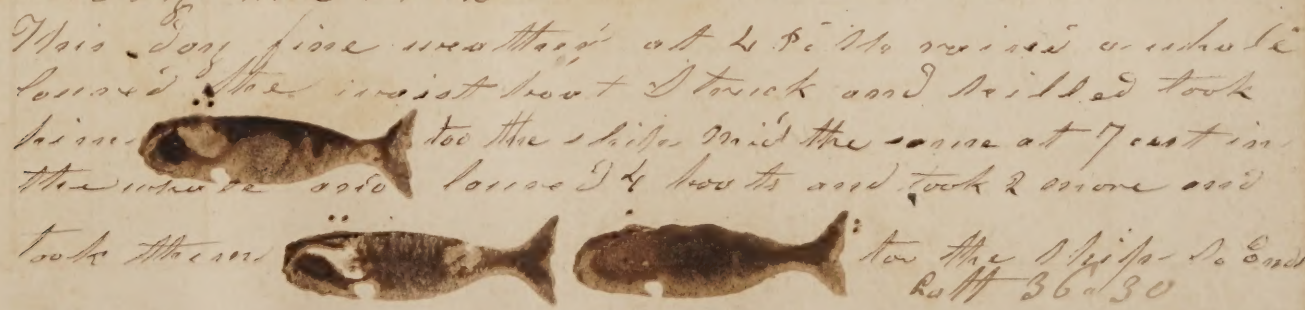 This day fine weather at 4 raised a whale
loured the waist boat Struck and killed took
him too the ship mid the same at 7 cut in
the whale and loured 4 boats and took 2 more and
took them too the Ship So Ends
Latt 36 30